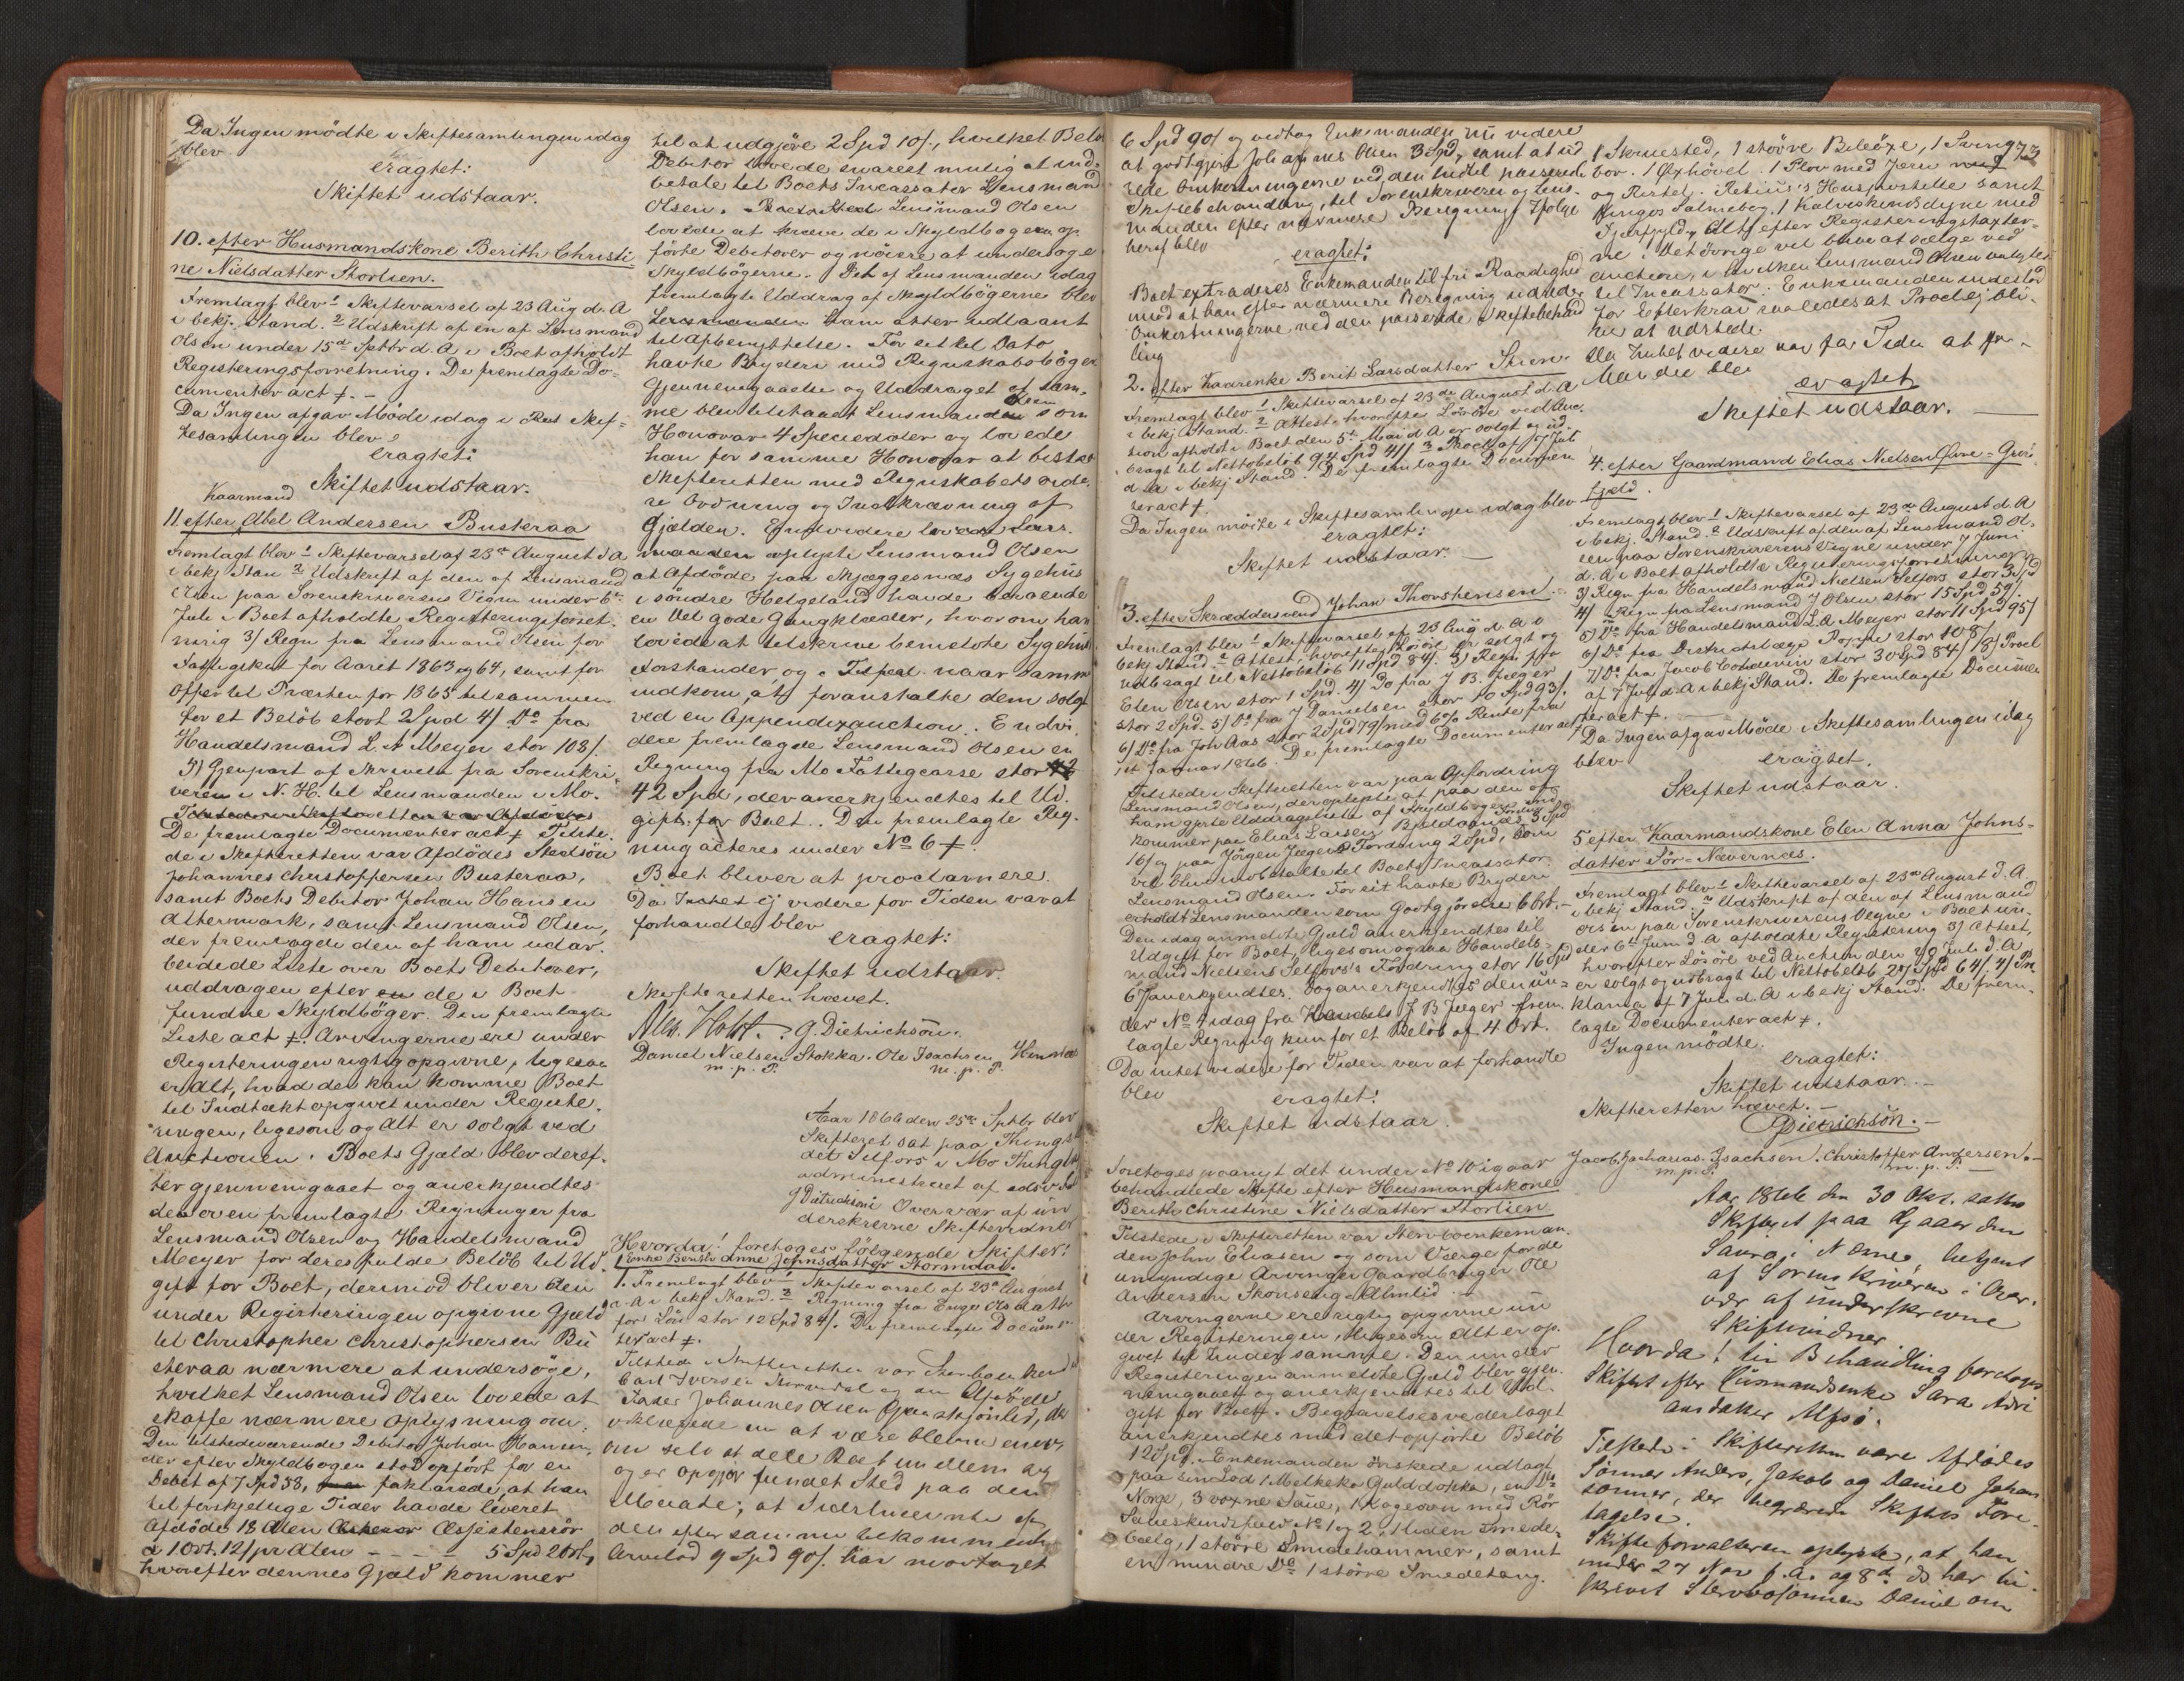 Da Ingen mödte i Skiftesamlingen idag
blev
eragtet:
Skiftet udstaar.
10. efter Husmandskone Berith Christi-
ne Nielsdatter Stortien.
Fremlagt blev 1 Skiftevarsel af 23 Aug d. A
i bekj. Stand. 2 Udskrift af en af Lensmand
Olsen under 15de Sptbr d. A i Boet afholdt
Registeringsforretning. De fremlagte Do-
cumenter act ⨍. -
Da Ingen afgav Möde idag i Skif-
tesamlingen blev
eragtet:
Skiftet udstaar.
Kaarmand
11. efter Abel Andersen Busteraa
Fremlagt blev 1 Skiftevarsel af 23de August d A
i bekj Stan 2 Udskrift af den af Lensmand
Olsen paa Sorenskriverens Vegne under 6te
Juli i Boet afholdte Registeringsforret-
ning 3) Regn fra Lensmand Olsen for
Fattigskat for Aaret 1863 og 64, samt for
Offer til Præsten for 1865 tilsammen
for et Belöb stort 2 Spd 4) Do fra
Handelsmand L. A Meyer stor 108/.
5) Gjenpart af Skrivelse fra Sorenskri-
veren i N. H. til Lensmanden i Mo.
De fremlagte Documenter act ⨍ Tilste-
de i Skifteretten var Afdödes Stedsön
Johannes Christoffersen Busteraa,
samt Boets Debitor Johan Hansen
Altermark, samt Lensmand Olsen,
der fremlagde den af ham udar-
beidede Liste over Boets Debitorer,
uddragen efter de i Boet
fundne Skyldböger. Den fremlagte
Liste act ⨍. Arvingerne ere under
Registeringen rigtig opgivne, ligesom
er Alt, hvad der kan komme Boet
til Indtækt opgivet under Registe-
ringen, ligesom og Alt er solgt ved
Auctionen. Boets Gjæld blev deref-
ter gjennemgaaet og anerkjendtes
den fremlagte Regninger fra
Lensmand Olsen og Handelsmand
Meyer for deres fulde Belöb til Ud-
gift for Boet, derimod bliver den
under Registeringen opgivne Gjæld
til Christopher Christophersen Bu-
steraa nærmere at undersöge,
hvilket Lensmand Olsen lovede at
skaffe nærmere Oplysning om.
Den tilstedeværende Debitor Johan Hansen,
der efter Skyldbogen stod opfört for en
Debet af 7 Spd 58, forklarede, at han
til forskjellige Tider havde leveret
Afdöde 18 Alen
a 1 Ort. 12/ pr Alen - - - - 5 Spd 2 Ort,
hvorefter dennes Gjæld kommer
til at udgjöre 2 Spd 10/., hvilket Belöb
Debitor lovede snarest mulig at ind-
betale til Boets Incassator Lensmand
Olsen. Lensmand Olsen
lovede at kræve de i Skyldbogen op
förte Debitorer og nöiere at undersöge
Skyldbögerne. Det af Lensmanden idag
fremlagte Uddrag af Skyldbögerne blev
ham atter udlaant
til Afbenyttelse. For sit til Dato
havte Bryderi med Regnskabsböger
Gjennemgaaelse og Uddraget af sam-
me blev tilstaaet Lensmand Olsen som
Honorar 4 Speciedaler og lovede
han for samme Honorar at bistaa
Skifteretten med Regnskabets vide-
re Ordning og Inddkrævning af
Gjælden. Endvidere
oplyste Lensmand Olsen
at Afdöde paa Skjæggesnæs Sygehus
i söndre Helgeland havde beroende
en Del gode Gangklæder, hvorom han
lovede at tilskrive bemeldte Sygehus
Forstander, og i Tilfæld naar samme
indkom, at foranstalte dem solgt
ved en Appendixauction. Endvi-
dere fremlagde Lensmand Olsen en
Regning fra Mo Fattigcasse stor
42 Spd, der anerkjendtes til Ud-
gift for Boet. Den fremlagte Reg-
ning acteres under No 6 ⨍.
Boet bliver at proclamere.
Da Intet ej videre for Tiden var at
forhandle blev
eragtet:
Skiftet udstaar.
Skifteretten hævet.
Alb. Holst. G. Dietrichson.
Daniel Nielsen Stokka. Ole Isachsen Hemnæs
m. p. P. m. p. P.
Aar 1866 den 25de Sptbr blev
Skifteret sat paa Thingst
det Selfors i Mo Thingl
administreret af edsv
G Dietrichson Overvær af un
derskrevne Skiftevidner
Hvorda! foretoges fölgende Skifter:
1 Enke Berith Anne Johnsdatter Stormdal.
1. Fremlagt blev 1 Skiftevarsel af 23de August
d. A i bekj Stand. 2 Regning fra Inger Olsdatter
for Lön stor 12 Spd 84/. De fremlagte Docum
ter act ⨍.
Tilstede i Skifteretten var
Carl Iversen Stormdal og den Afdödes
Fader Johannes Olsen
om at være blevne enige
om selv at dele Boet imellem sig
og er Opgjör fundet Sted paa den
Maade, at Sidstnævnte
den efter samme tilkommende
Arvelod 9 Spd 90/. har modtaget
6 Spd 90/ og vedtog Enkemanden nu videre
at godtgjöre Johannes Olsen 3 Spd, samt at ud
rede Omkostningerne ved den hidtil passerede
Skiftebehandling, til Sorenskriveren og Lens-
manden efter nærmere Beregning. Ifölge
heraf blev
eragtet:
Boet extraderes Enkemanden til fri Raadighed
mod at han efter nærmere Beregning udreder
Omkostningerne ved den passerede Skiftebehand
ling
2. efter Kaarenke Berit Larsdatter
Fremlagt blev 1 Skiftevarsel af 23de August d. A
i bekj Stand. 2 Attest, hvorefter Lösöre ved Auc-
tion afholdt i Boet den 5te Mai d. A er solgt og ud-
bragt til Nettobelöb 94 Spd 41/ 3 Procl. af 7 Juli
d. A i bekj Stand. De fremlagte Documen
ter act ⨍.
Da Ingen mödte i Skiftesamlingen idag blev
eragtet:
Skiftet udstaar. -
3. efter Skræddersvend Johan Thorstensen.
Fremlagt blev 1 Skiftevarsel af 23 Aug d. A i
bekj Stand. 2 Attest, hvorefter Lösöre er solgt og
udbragt til Nettobelöb 11 Spd 84/. 3) Regn fra
Elen Olsen stor 1 Spd. 4) Do fra J B. Jæger
stor 2 Spd. 5) Do fra J Danielsen stor 10 Spd 93/.
6) Do fra Joh Aas stor 2 Spd 79/ med 6% Rente fra
14 Januar 1866. De fremlagte Documenter act ⨍
Tilstede i Skifteretten var paa Opfordring
Lensmand Olsen, der oplyste at paa den af
ham gjorte Uddragsliste af Skyldbogen ind
kommer paa Elias Larsen Fordring 3 Spd
16/ og paa Jörgen Jægers Fordring 2 Spd, som
vil blive indbetalte til Boets Incassator
Lensmand Olsen. For sit havte Bryderi
erholdt Lensmanden som Godtgjörelse 6 Ort.-
Den idag anmeldte Gjæld anerkjendtes til
Udgift for Boet, ligesom ogsaa Handels-
mand Nielsens Selfors's Fordring stor 16 Spd
6/ anerkjendtes. Dog anerkjendtes den un-
der No 4 idag fra J B Jæger frem-
lagte Regning kun for et Belöb af 4 Ort.
Da intet videre for Tiden var at forhandle
blev
eragtet:
Skiftet udstaar.
Foretoges paanyt det under No 10 igaar
behandlede Skifte efter Husmandskone
Berith Christine Nielsdatter Stortien
Tilstede i Skifteretten var Stervboenkeman-
den John Eliasen og som Værge for de
umyndige Arvinger Gaardbruger Ole
Andersen Skonseng-Almlid
Arvingerne ere rigtig opgivne un
der Registeringen, ligesom Alt er op-
givet til Under samme. Den under
Registeringen anmeldte Gjæld blev gjen-
nemgaaet og anerkjendtes til Ud-
gift for Boet. Begravelsesvederlaget
anerkjendtes med det opförte Belöb
12 Spd. Enkemanden önskede udlagt
paa sin Lod 1 Melkeko Guldokka, en Do
Norge, 3 voxne Sauer, 1 Kogeovn med Rör
Saueskindsfæld No 1 og 2, 1 liden Smede-
bælg, 1 större Smidehammer, samt
en mindre Do 1 större Smedetang.
1 Skruested, 1 större Bileöxe, 1 Sving
73
bor. 1 Öxhövel. 1 Plov med Jern
og Ristel. Huspostille samt
Kingos Salmebog. 1 Kalveskindsdyne med
Fjærfyld, Alt efter Registeringstaxter-
ne. Det Övrige vil blive at sælge ved
Auction, i hvilken Lensmand Olsen valgtes
til Incassator. Enkemanden indestod
for Efterkrav saaledes at Procl ej bli-
ver at udstede.
Da Intet videre var for Tiden at for-
handle blev
eragtet
Skiftet udstaar.
4. efter Gaardmand Elias Nielsen Övre-Grön-
fjæld.
Fremlagt blev 1 Skiftevarsel af 23de August d. A
i bekj. Stand. 2 Udskrift af den af Lensmand Ol-
sen paa Sorenskriverens Vegne under 7 Juni
d. A i Boet afholdte Registeringsforretning
3) Regn fra Handelsmand Nielsen Selfors stor 3 Spd
4) Regn fra Lensmand J Olsen stor 15 Spd 59/.
5) Do fra Handelsmand L. A Meyer stor 11 Spd 95/
6) Do fra Districtslæge Poppe stor 108/
7) Do fra Jacob Coldevin stor 30 Spd 84/ 8) Procl
af 7 Juli d. A i bekj Stand. De fremlagte Documen
ter act ⨍.
Da Ingen afgav Möde i Skiftesamlingen idag
blev
eragtet.
Skiftet udstaar.
5 efter Kaarmandskone Elen Anna Johns-
datter Sör-Nævernæs.
Fremlagt blev 1 Skiftevarsel af 23de August d. A.
i bekj Stand. 2 Udskrift af den af Lensmand
Olsen paa Sorenskriverens Vegne i Boet un-
der 6te Juni d. A afholdte Registering 3) Attest,
hvorefter Lösöre ved Auction den 29 Juli d. A
er solgt og udbragt til Nettobelöb 27 Spd 64/. 4) Pro
klama af 7 Juli d. A i bekj Stand. De frem-
lagte Documenter act ⨍.
Ingen mödte.
eragtet:
Skiftet udstaar. -
Skifteretten hævet. -
G Dietrichson. -
Jacob Zacharias Isachsen. Christoffer Andersen. -
m. p. P. m. p. P. -
Aar 1866 den 30 Okt. sattes
Skifteret paa Gaarden
Saura i Næsne, betjent
af Sorenskriveren i Over-
vær af underskrevne
Skiftevidner
Hvorda! til Behandling foretoges
Skiftet efter Husmandsenke Sara Adri
ansdatter Alfsö.
Tilstede i Skifteretten vare Afdödes
Sönner Anders, Jakob og Daniel Johan
sönner, der begjærede Skiftets Fore-
tagelse.
Skifteforvalteren oplyste, at han
under 27 Nov f. A. og 8de ds har til-
skrevet Stervbosönnen Daniel om